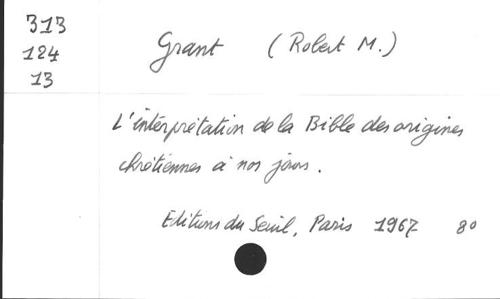 313
124
13
Grant (Robert M.)
L'interprétation de la Bible des origines
chrétiennes à nos jours.
Editions du Seuil, Paris 1967 8°